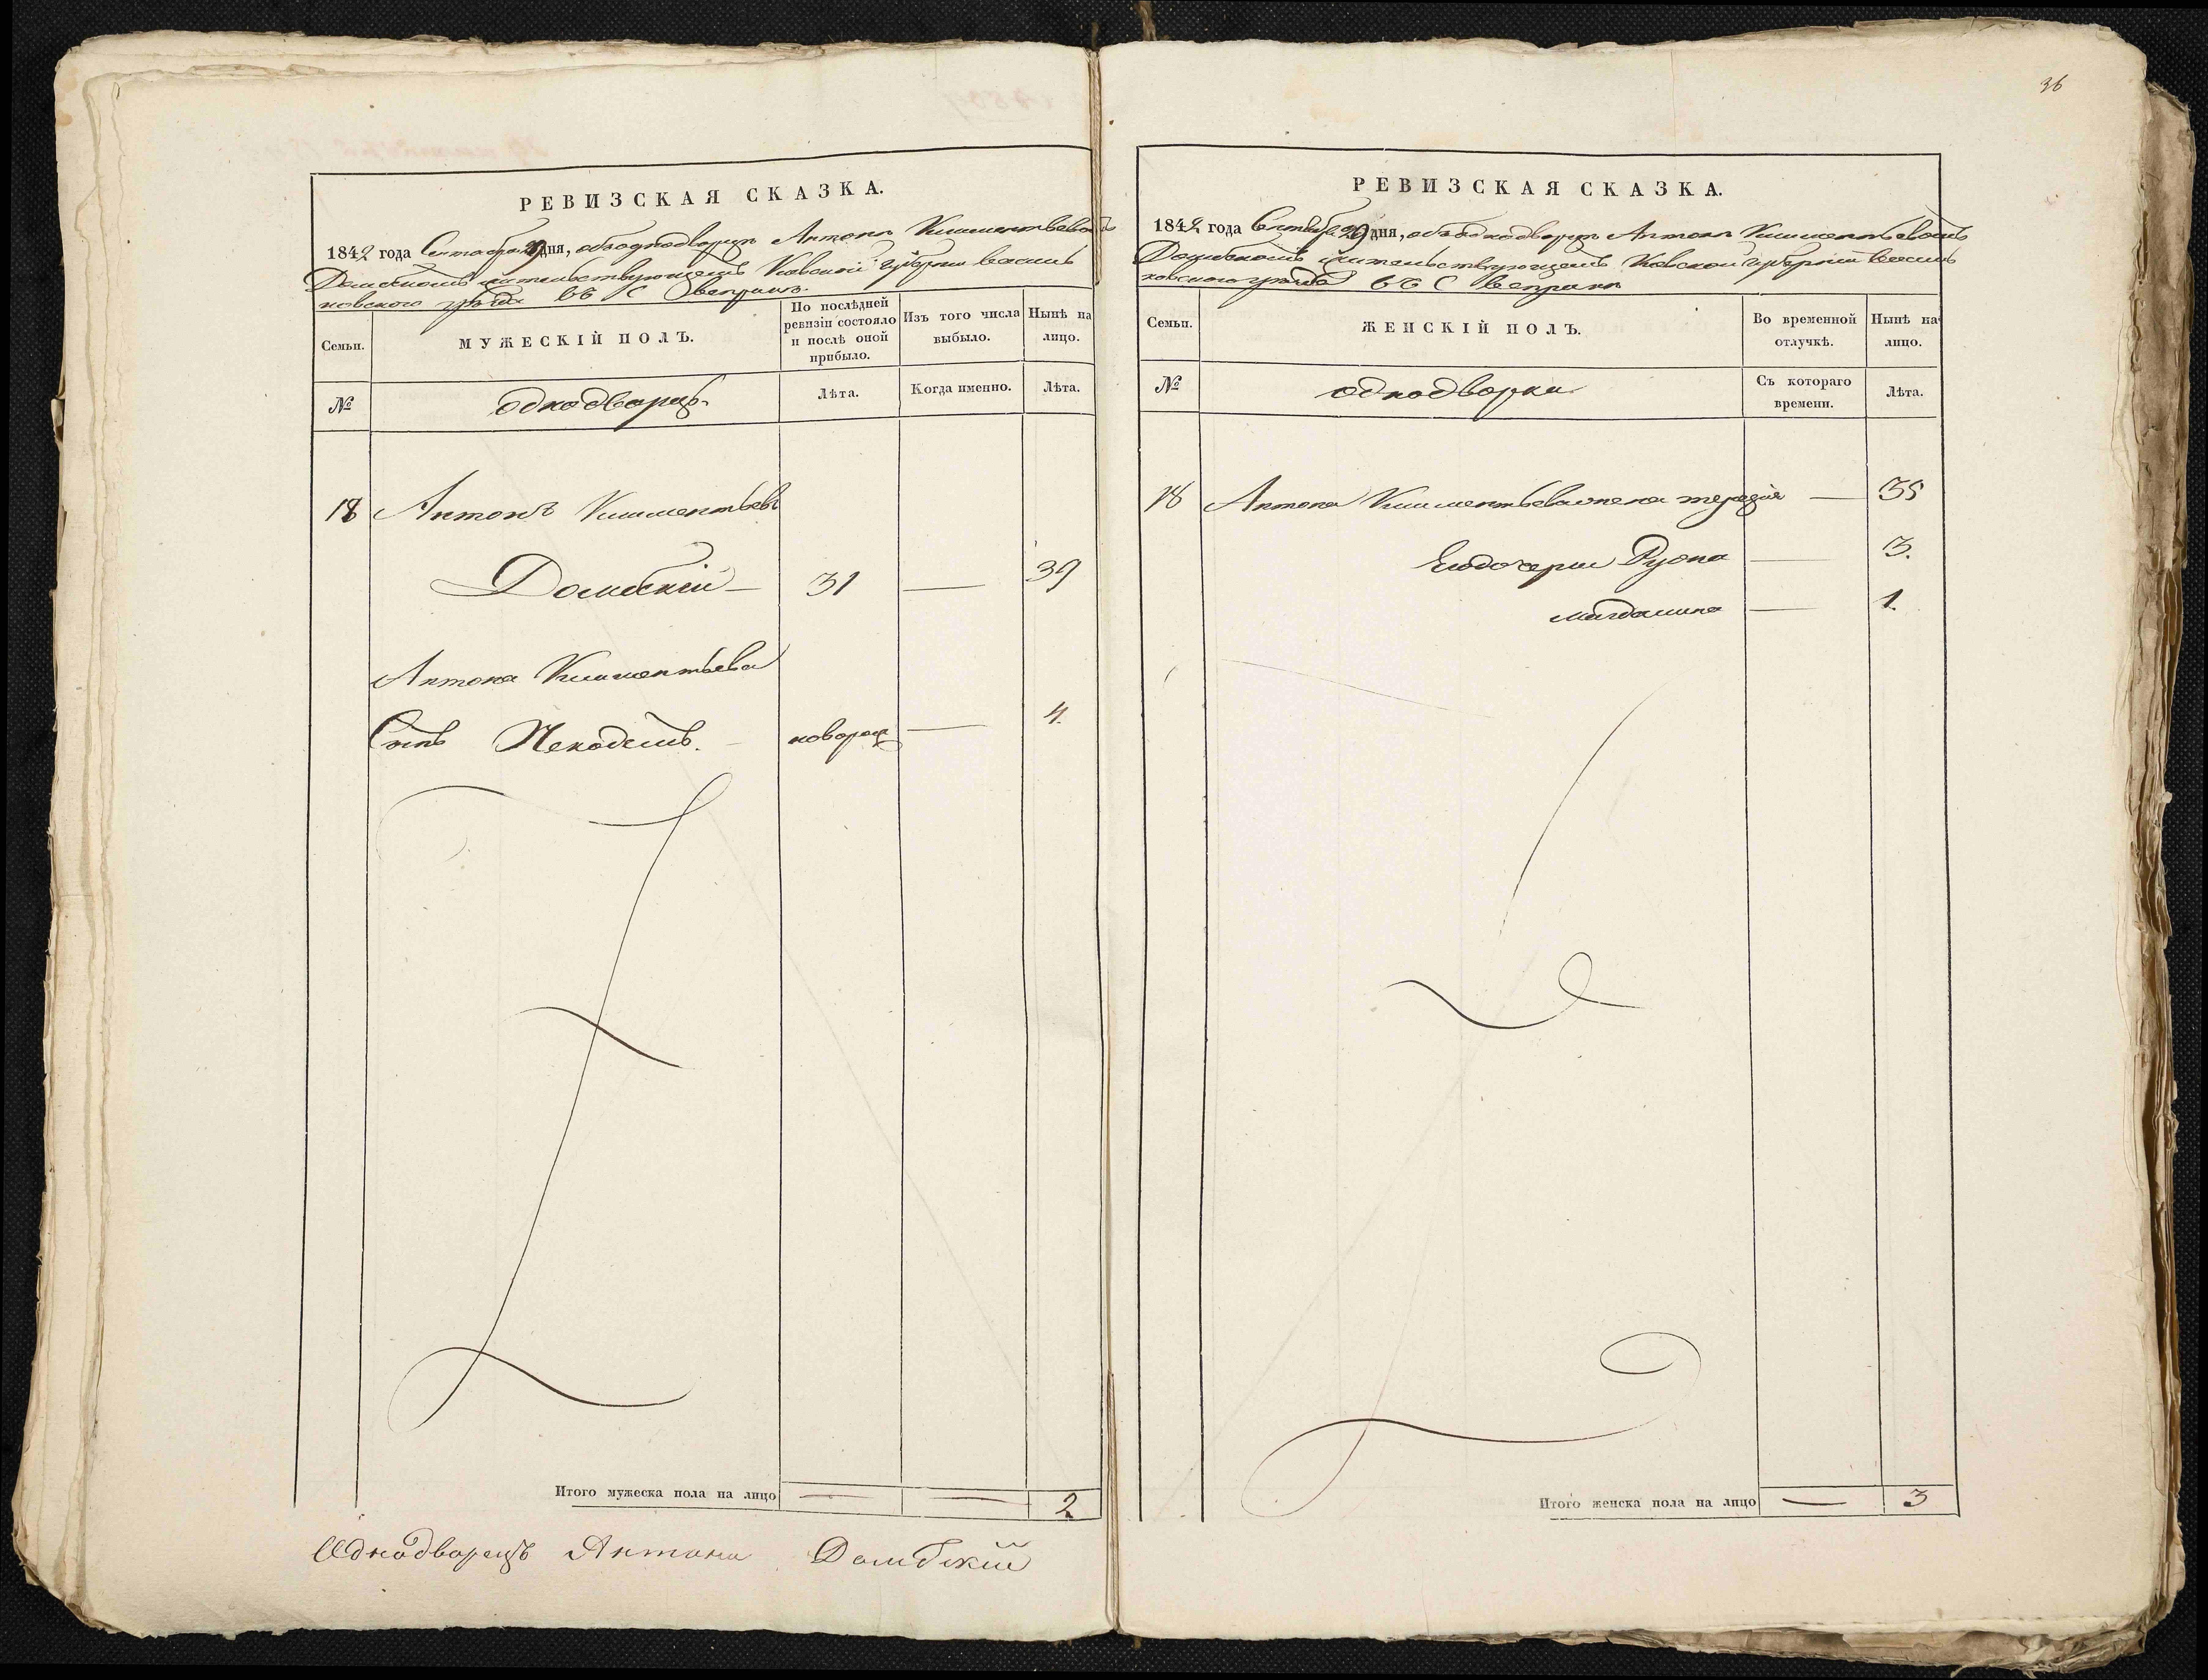 36
РЕВИЗСКАЯ СКАЗКА.
1842 года Сентября 29 дня, объ однодворцѣ Антонѣ Климентьевомъ
Домбскомъ жительствующемъ Кіевской губерніи Василь
ковскаго уѣзда въ С Веприкѣ
Семьи.
МУЖЕСКІЙ ПОЛЪ.
По послѣдней
ревизіи состояло
и послѣ оной
прибыло.
Изъ того числа
выбыло.
Нынѣ на
лицо.
№
однодворцъ
Лѣта.
Когда именно.
Лѣта.
18 Антонъ Климентьевъ
Домбскій — 31 — 39
Антона Климентьева
Сынъ Некодемъ. новорож — 4.
Итого мужеска пола на лицо — — 2
Однодворецъ Антони Домбскій
РЕВИЗСКАЯ СКАЗКА.
1842 года Сентября 29 дня, объ однодворцѣ Антонѣ Климентьевомъ
Домбскомъ жительствующемъ Кіевской губерніи Василь
ковскаго уѣзда въ С Веприкѣ
Семьи.
ЖЕНСКІЙ ПОЛЪ.
Во временной
отлучкѣ.
Нынѣ на
лицо.
№
однодворки
Съ котораго
времени.
Лѣта.
18 Антона Климентьева жена — 35
Его дочери — 3.
Магдалина — 1.
Итого женска пола на лицо — 3